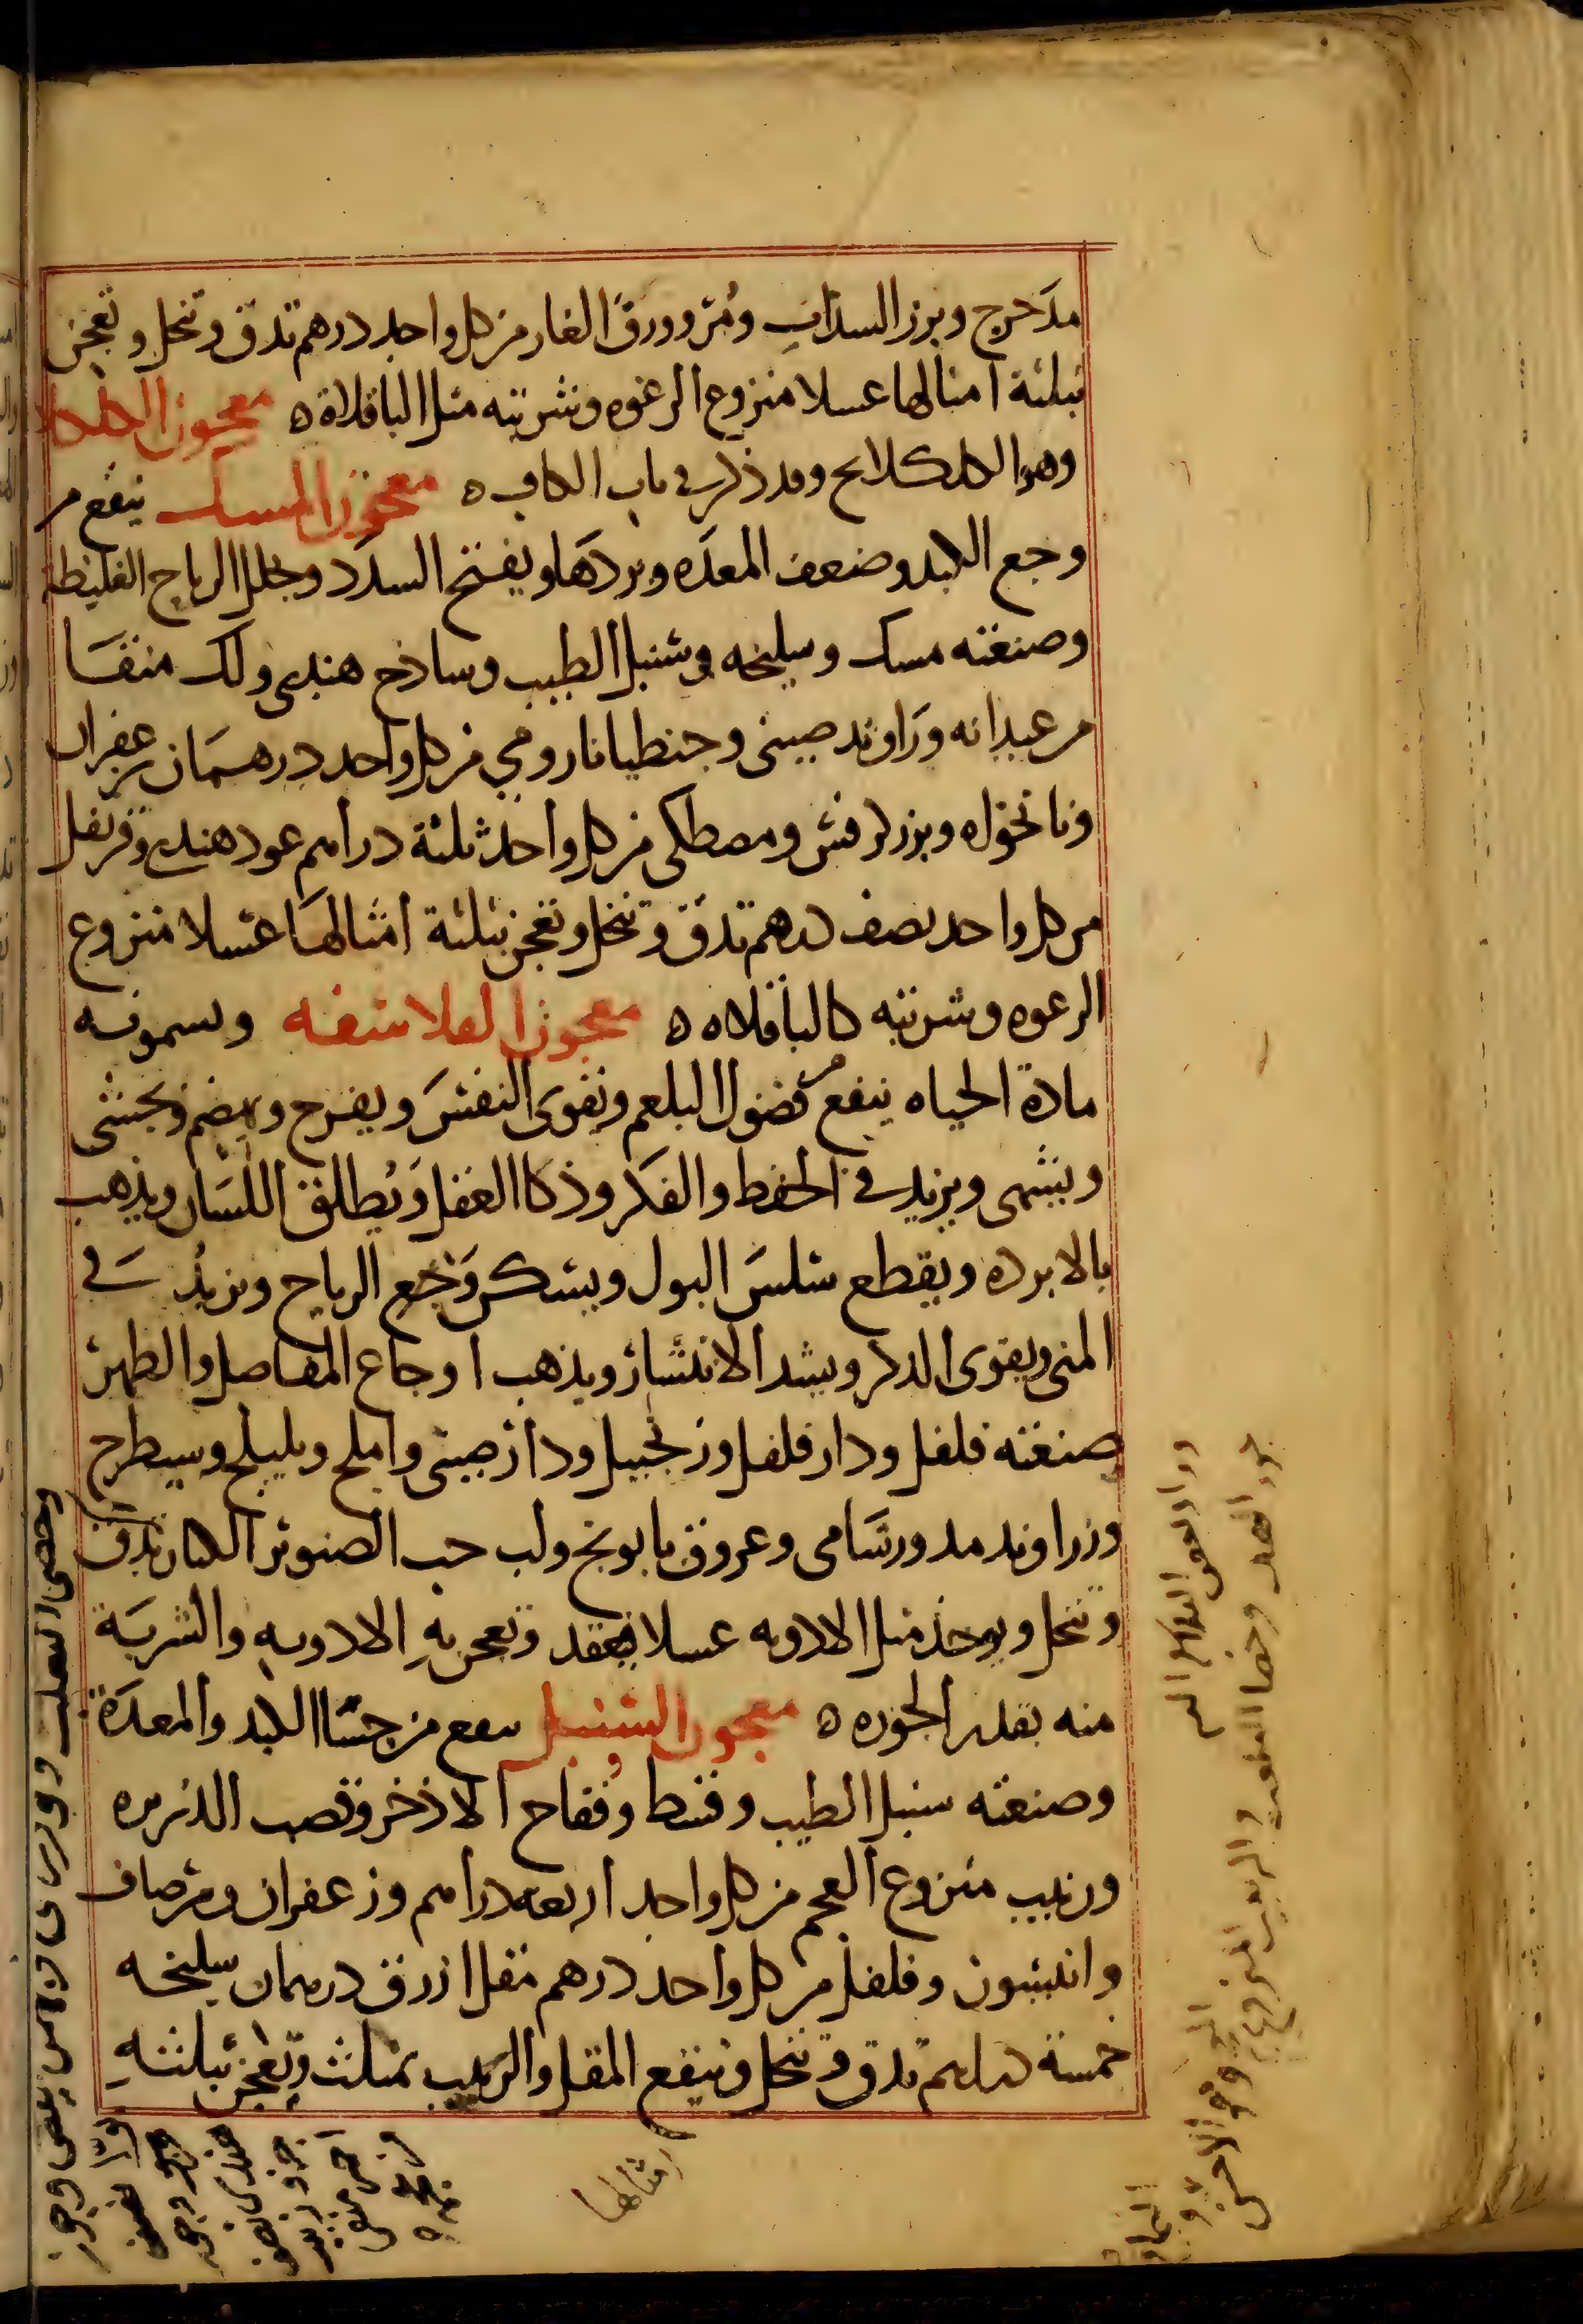 مدحرج وبزر السذاب ومُرّ وورق الغار من كل واحد درهم تدق وتنخل وتعجن
بثلثة امثالها عسلا منزوع الرغوه وشربته مثل الباقلاة ه معجون الكلكلا
وهو الكلكلانج وقد ذكر في باب الكاف ه معجون المسك ينفع من
وجع الكبد وضعف المعدَه وبردهَا ويفتح السدَد ويحلل الرياح الغليظة
وصنعته مسك وسليخه وسُنبل الطيب وساذج هندي ولك منقا
من عيدانه ورَاوند صيني وجنطيانا رومي من كل واحد درهمَان زعفران
ونانخواه وبزر كرفس ومصطكى من كل واحد ثلثة دراهم عود هندي وقرنفل
من كل واحد نصف درهم تدق وتنخل وتعجن بثلثة امثالهَا عسلا منزوع
الرغوه وشربته كالباقلاه ه معجون الفلاسفه ويسمونه
مادة الحياه ينفع من فضول البلغم ويقوى النفسَ ويفرح ويهضم ويجشى
ويشهى ويزيد في الحفظ والفكر وذكا العقل ويُطلق اللسَان ويذهب
بالابرده ويقطع سلسَ البول ويسكن وَجع الرياح ويزيدُ في
المنى ويقوى الذكر ويشد الانتشار ويذهب اوجاع المفاصل والظهر
صنعته فلفل ودار فلفل وزنجبيل ودار صينى واملج وبليلج وسيطرج
وزراوند مدور شامى وعروق بابونج ولب حب الصنوبر الكبار تدق
وتنخل ويوخذ مثل الادويه عسلا فيعقد وتعجن بهِ الادويهِ والشربَة
منه بقدر الجوزه ه معجون السنبل ينفع من جسَا الكبد والمعدَة
وصنعته سنبل الطيب وقسط وفُقاح الاذخر وقصب الذريره
وزبيب منزوع العجم من كل واحد اربعه دراهم وزعفران ومرّ صاف
وانيسون وفلفل من كل واحد درهم مقل ازرق درهمان سليخه
خمسة دراهم تدق وتنخل وينقع المقل والزبيب بمثلث وتعجن بثلثتهِ
امثالها